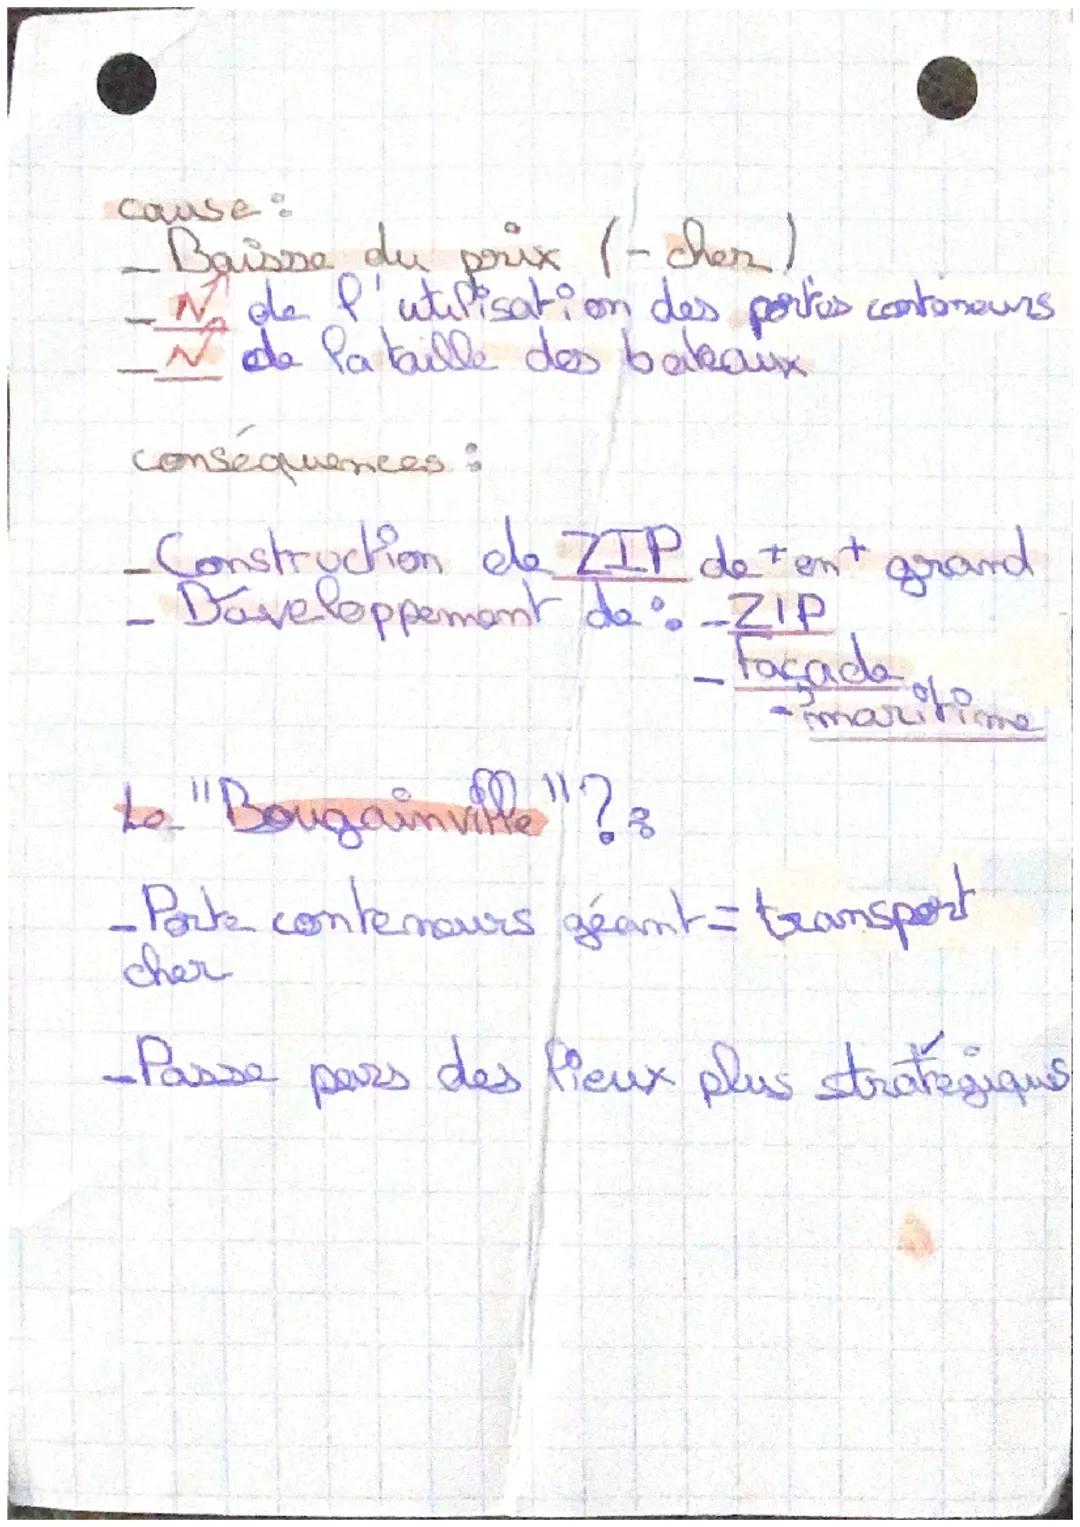 cause :
- Baisse du prix (- cher)
- ↗ de l'utilisation des portes conteneurs
- ↗ de la taille des bateaux
conséquences :
- Construction de ZIP de + en + grand
- Développement de : - ZIP
- façade
- maritime
Le "Bougainville" ? :
- Porte conteneurs géant = transport
cher
- Passe pars des lieux plus stratégiques